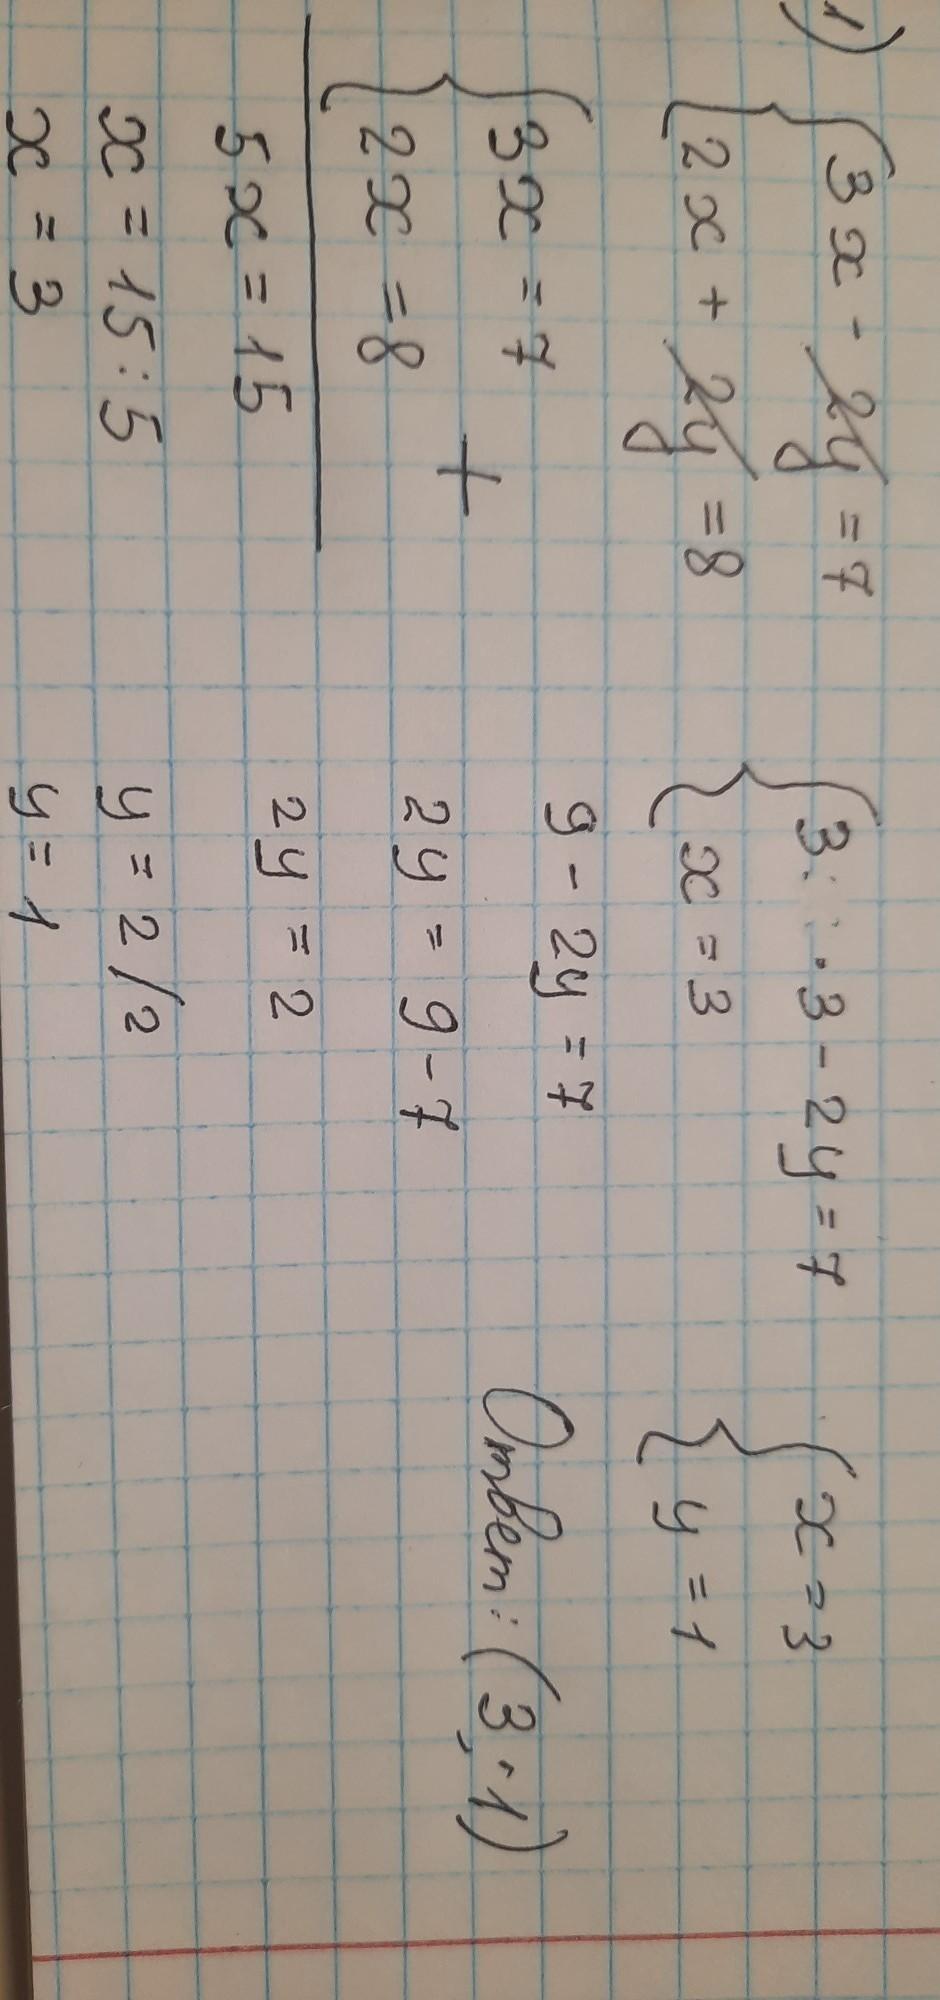 1)
{ 3x - 2y = 7
2x + 2y = 8
{ 3x = 7
2x = 8
+
5x = 15
x = 15 : 5
x = 3
{ 3 · 3 - 2y = 7
x = 3
9 - 2y = 7
2y = 9 - 7
2y = 2
y = 2/2
y = 1
{ x = 3
y = 1
Ответ: (3, 1)